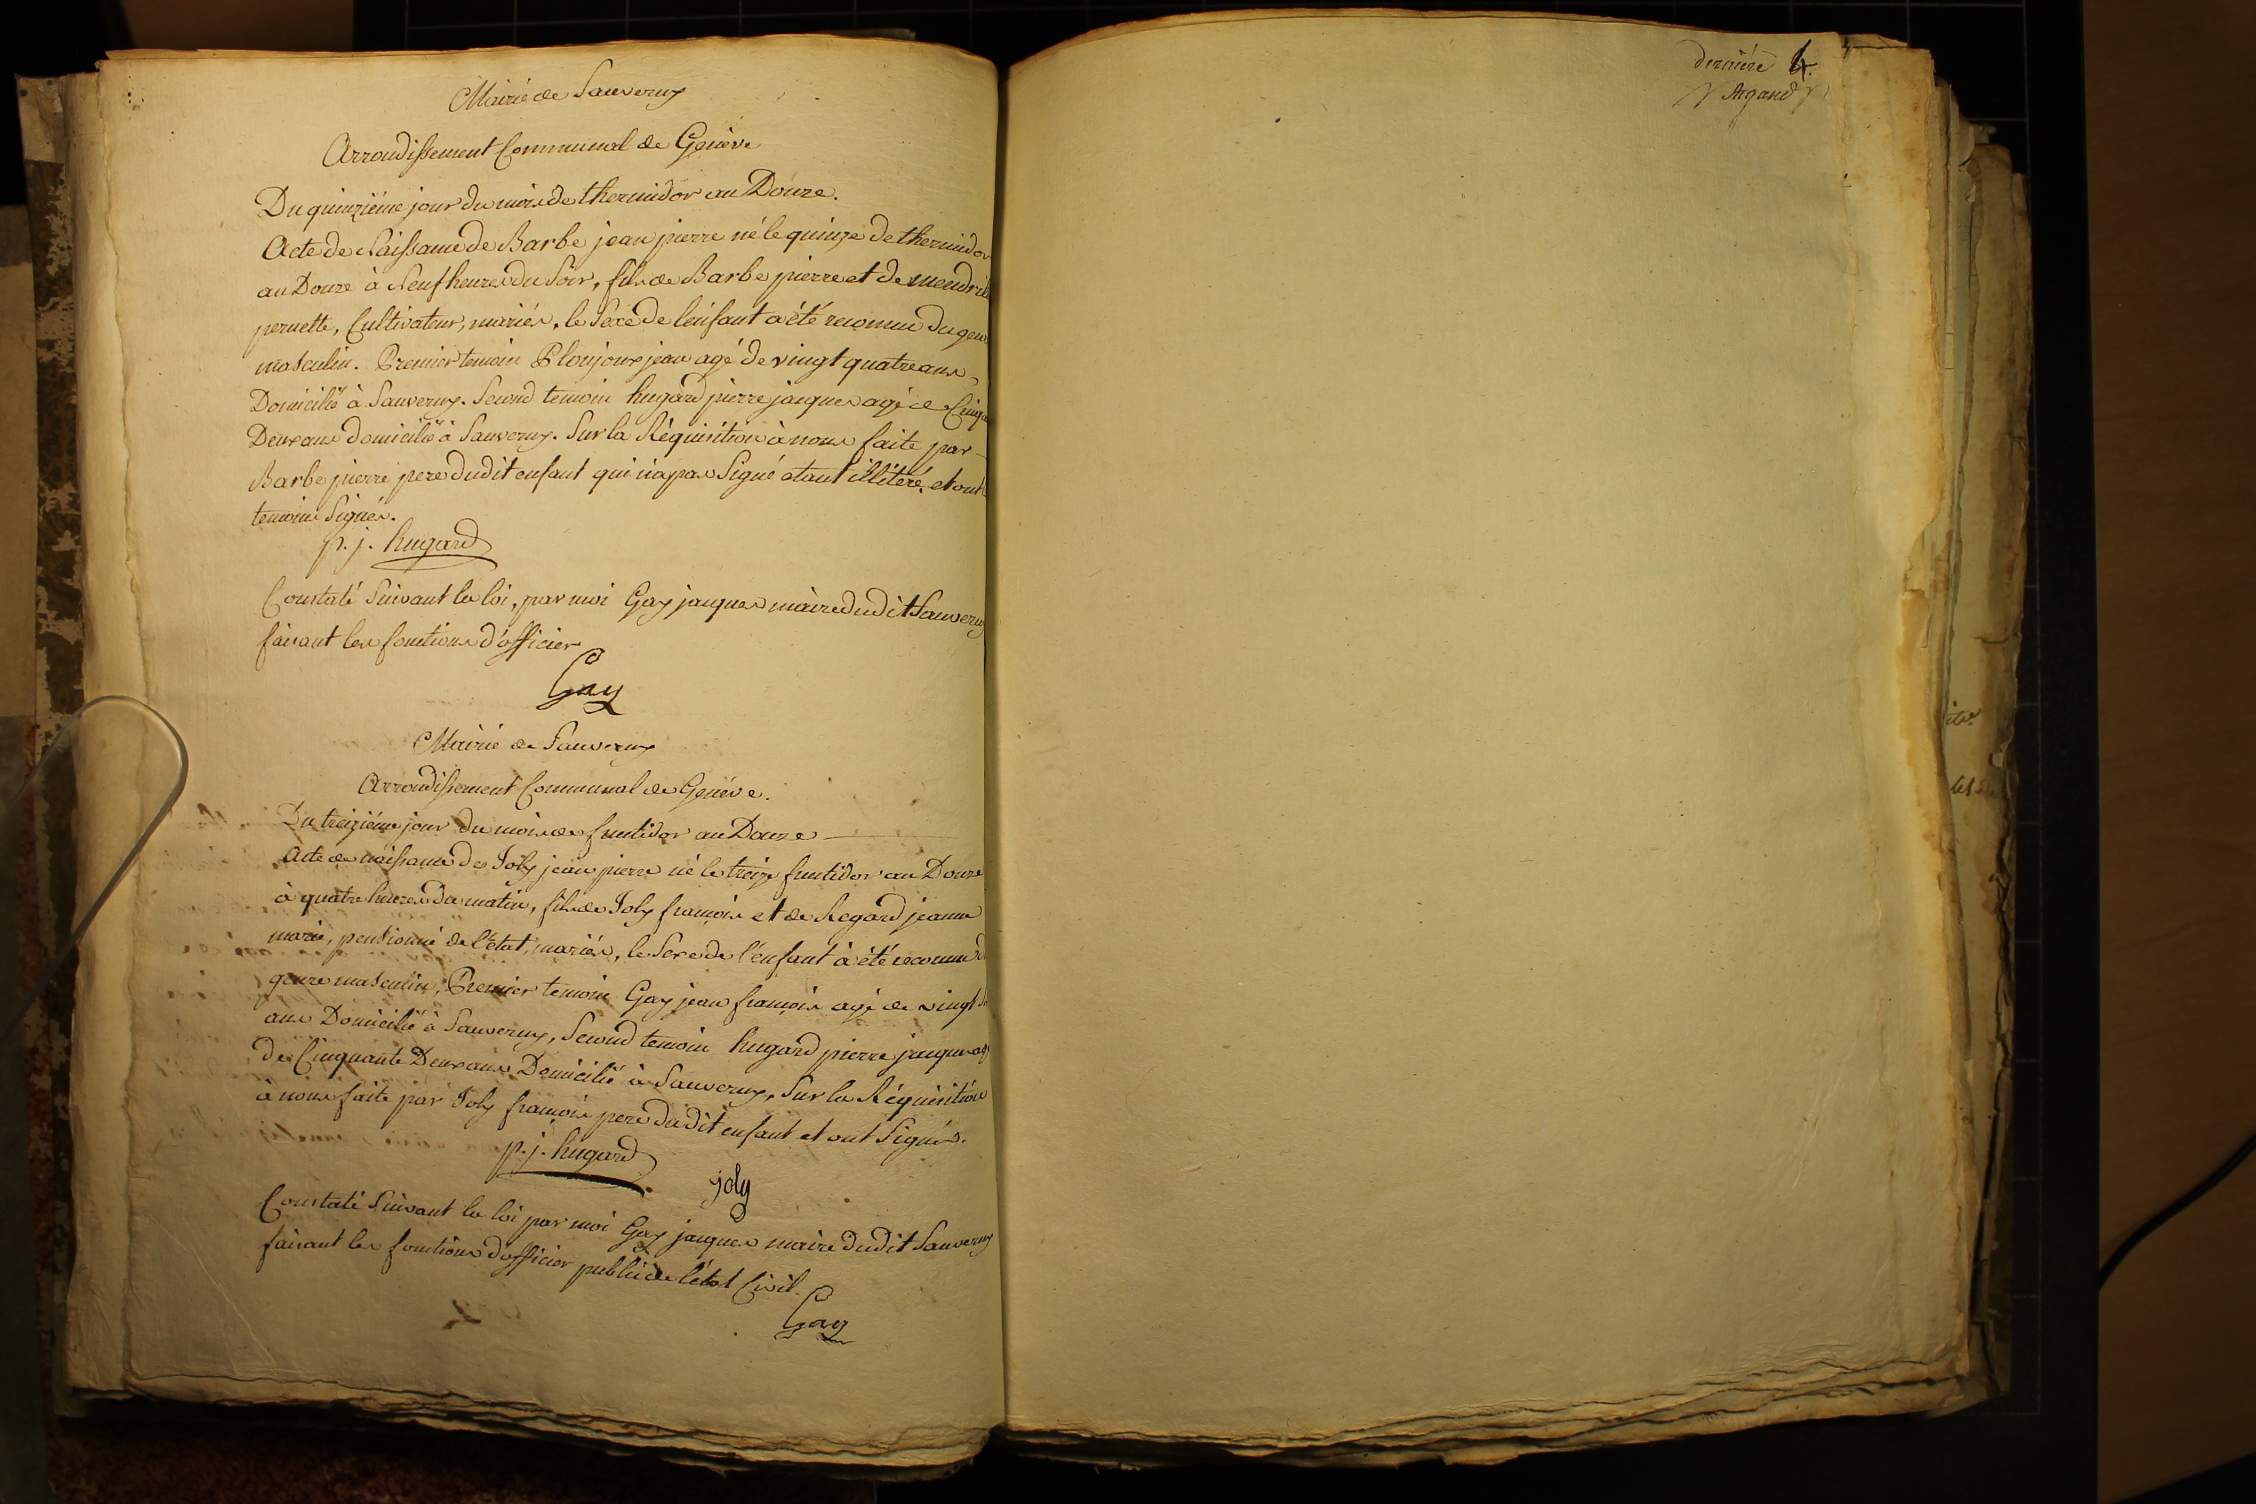 Mairie de Sauverny
Arrondissement Communal de Genève
Du quinzième jour du mois de thermidor an Douze.
Acte de Naissance de Barbe jean pierre né le quinze de thermidor
an Douze à Neuf heures du Soir, fils de Barbe pierre et de
pernette, Cultivateur, mariés, le Sexe de l'enfant a été reconnu du
masculin. Premier temoin Plonjoux jean agé de vingt quatre ans
Domicilié à Sauverny. Second temoin hugard pierre jacques agé de
Deux ans domicilié à Sauverny. Sur la Réquisition à nous faite par
Barbe pierre pere dudit enfant qui n'a pas Signé etant illitéré, et ont
temoins Signés.
p. j. hugard
Constaté Suivant la loi, par moi Gay jacques maire dudit Sauverny
faisant les fonctions d'officier
Gay
Mairie de Sauverny
Arrondissement Communal de Genève.
Du treizième jour du mois de fructidor an Douze
Acte de naissance de Joly jean pierre né le treize fructidor an Douze
à quatre heures du matin, fils de Joly françois et de Regard jeanne
marie, pensionné de l'état, mariés, le Sexe de l'enfant à été reconnu
genre masculin, Premier temoin Gay jean françois agé de vingt
ans Domicilié à Sauverny, Second temoin hugard pierre jacques
de Cinquante Deux ans Domicilié à Sauverny, Sur la Réquisition
à nous faite par Joly françois pere dudit enfant et ont Signés.
p. j. hugard
joly
Constaté Suivant la loi par moi Gay jacques maire dudit Sauverny
faisant les fonctions d'officier public de l'état Civil.
Gay
dernière 4.
Argand